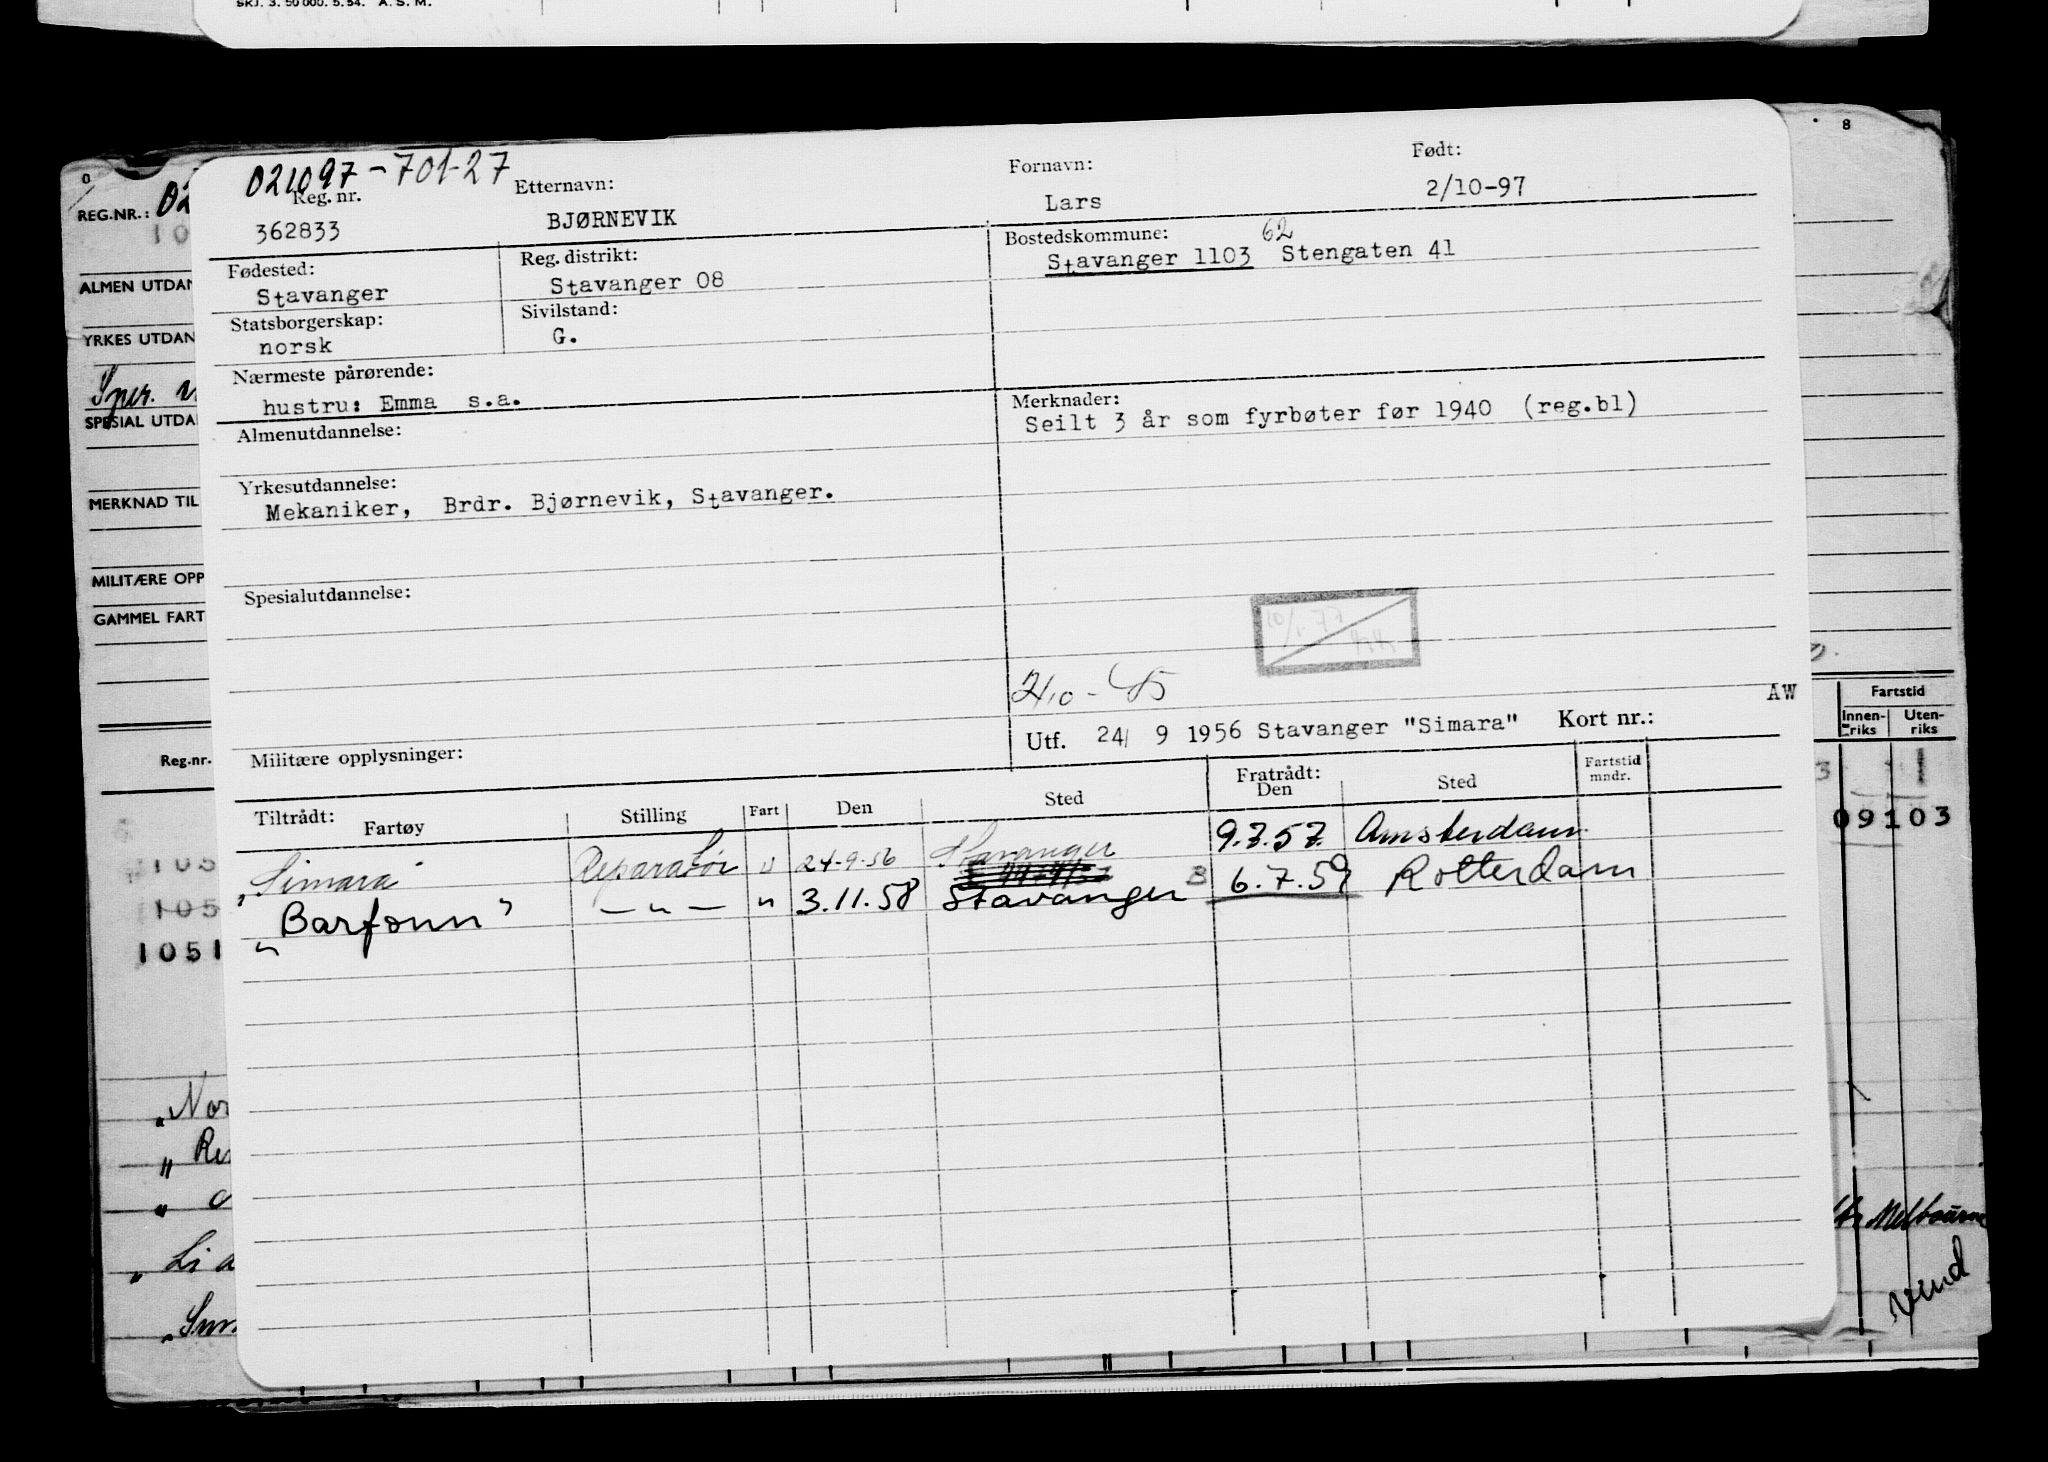 SKJ. 3. 50 000. 5. 54. A. S. M.
8
0
REG.NR.: 02
10
ALMEN UTDAN
YRKES UTDAN
SPESIAL UTDA
MERKNAD TIL
MILITÆRE OPP
GAMMEL FART
Reg.nr.
105
105
1051
021097-701-27
Reg. nr.
362833
Etternavn:
BJØRNEVIK
Fornavn:
Lars
Født:
2/10-97
Fødested:
Stavanger
Reg. distrikt:
Stavanger 08
Bostedskommune: 62
Stavanger 1103 Stengaten 41
Statsborgerskap:
norsk
Sivilstand:
G.
Nærmeste pårørende:
hustru: Emma s.a.
Merknader:
Seilt 3 år som fyrbøter før 1940 (reg.bl)
Almenutdannelse:
Yrkesutdannelse:
Mekaniker, Brdr. Bjørnevik, Stavanger.
Spesialutdannelse:
AW
Militære opplysninger:
Utf. 24/ 9 1956 Stavanger "Simara" Kort nr.:
Tiltrådt:
Fartøy Stilling Fart Den Sted
Fratrådt:
Den Sted
Fartstid
mndr.
"Simara Reparatør u 24-9-56 Stavanger 9.7.57. Amsterdam.
"Barfonn" — " — " 3.11.58 Stavanger B 6.7.59 Rotterdam
Fartstid
Innen-
riks
Uten-
riks
09103
"Nor
"Li a
Melbourne
vend